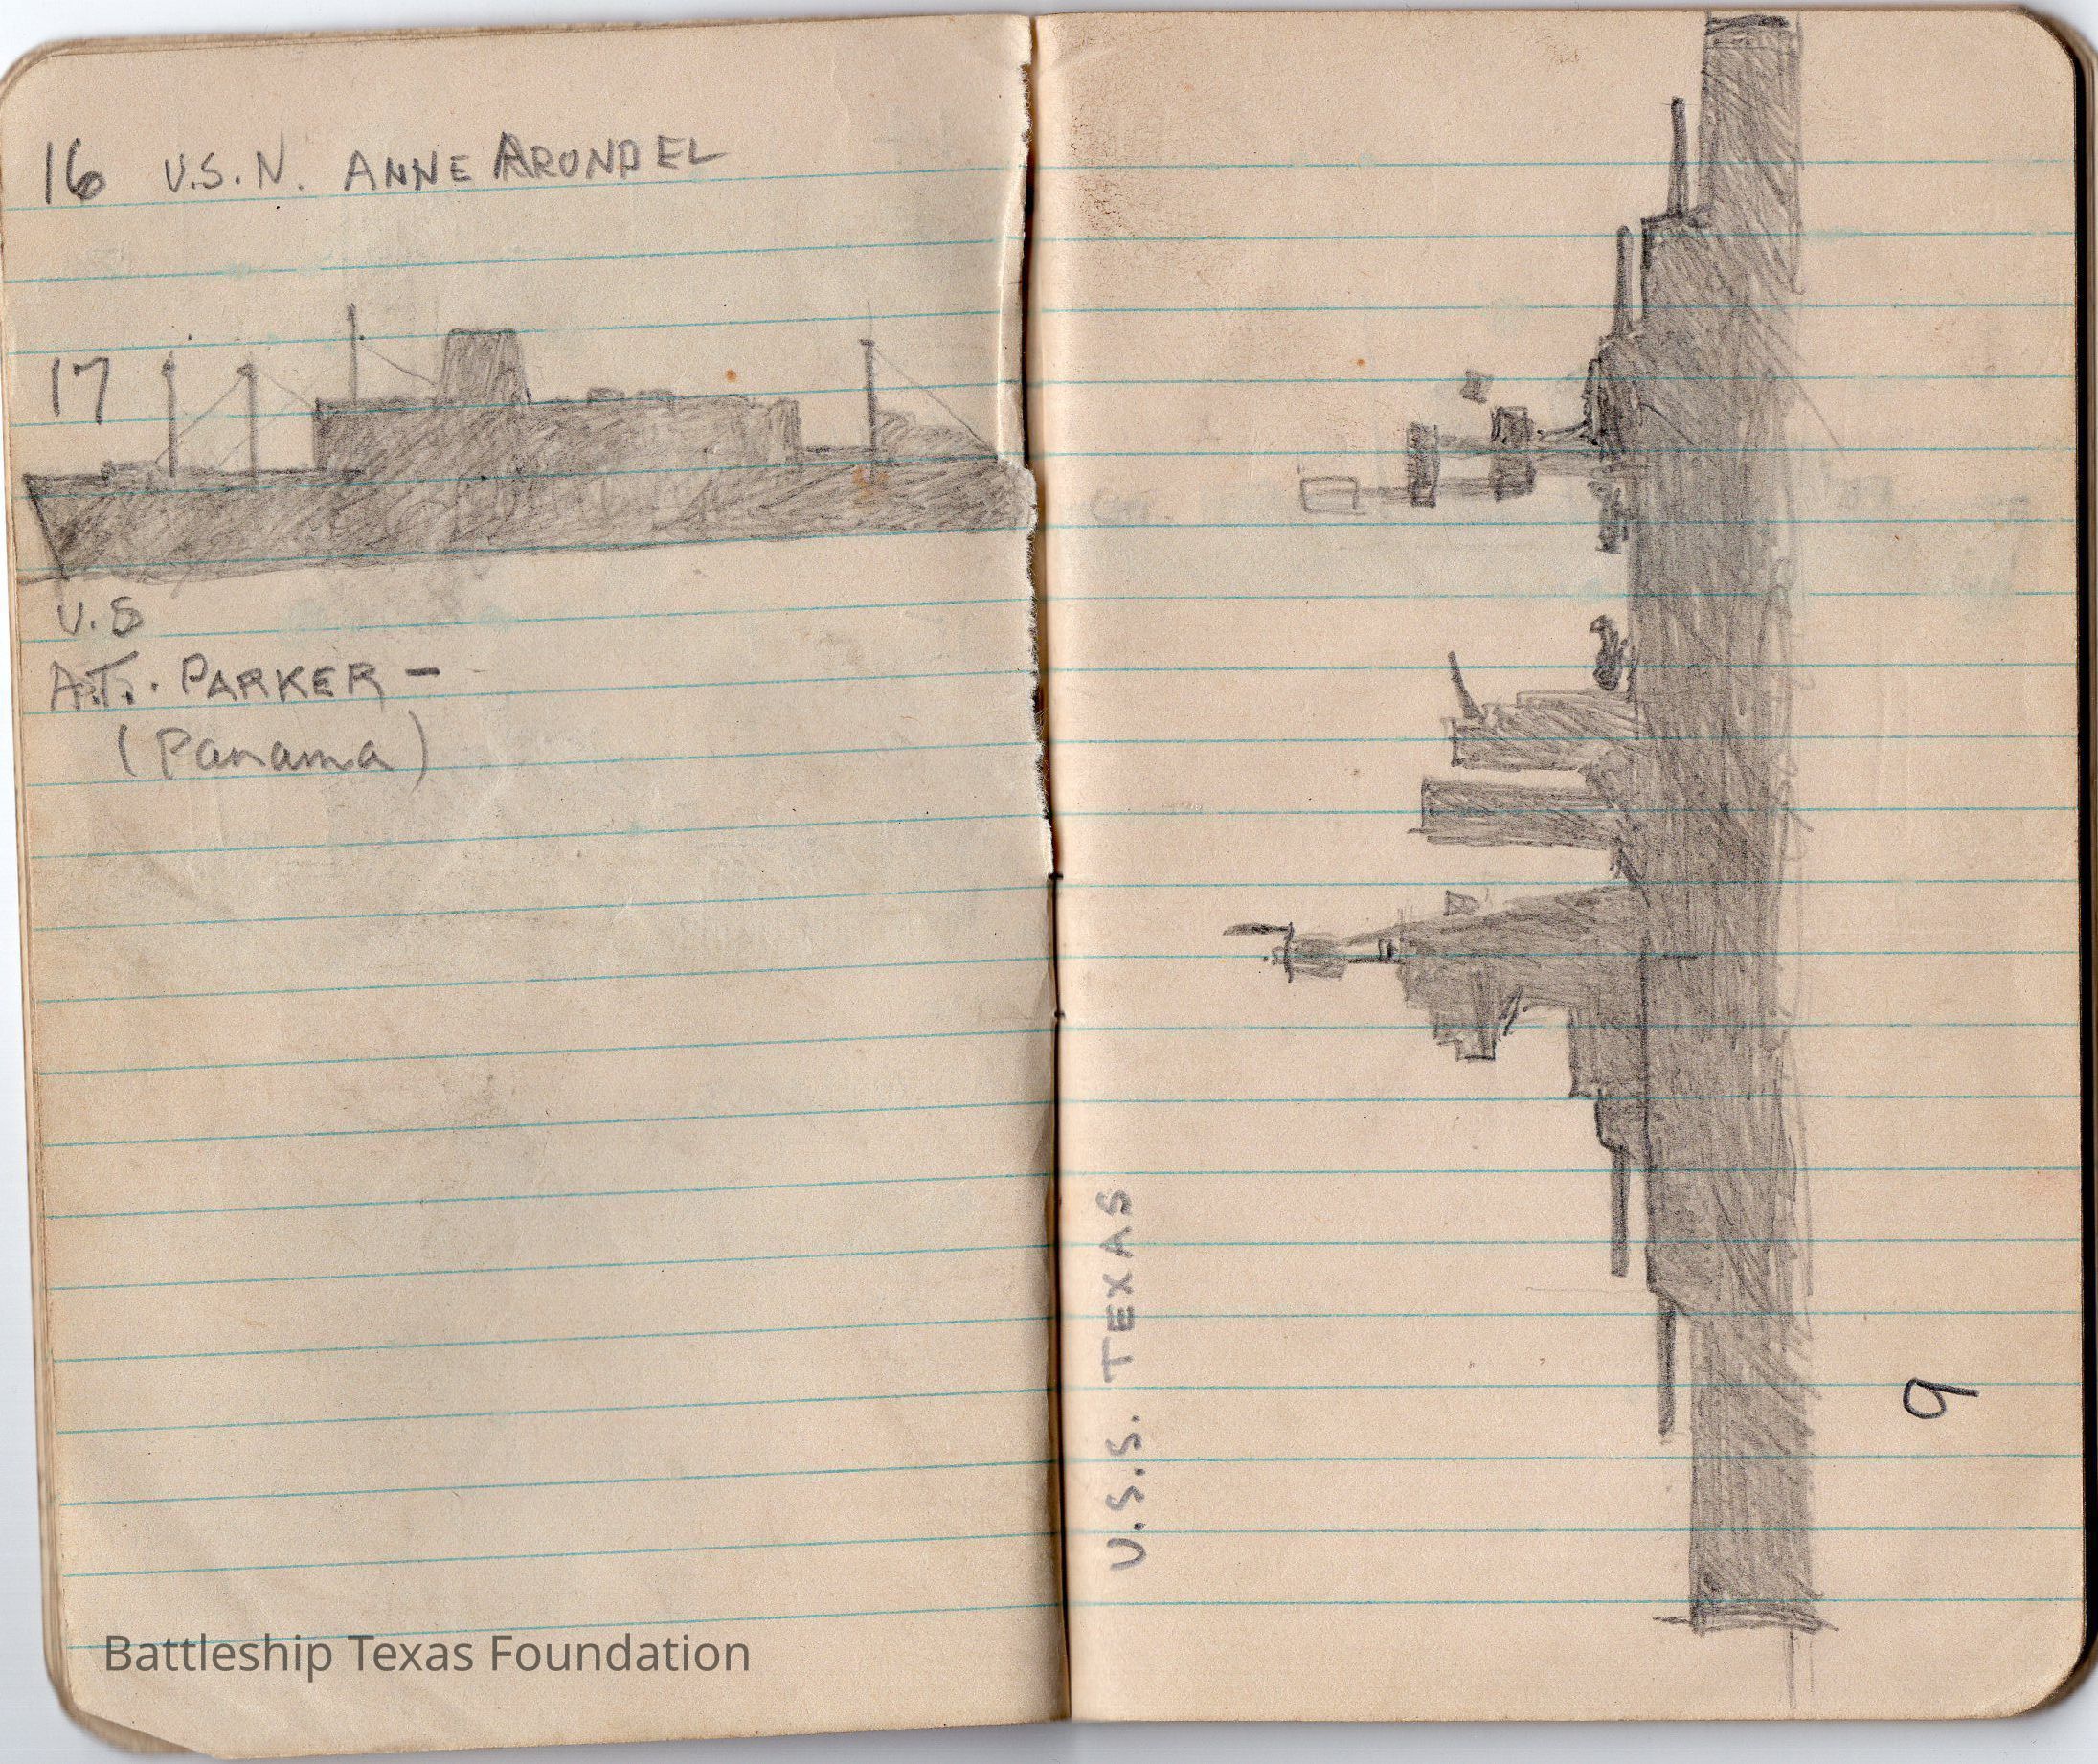 16 U.S.N. ANNE ARUNDEL
17
U.S
A.T. PARKER -
(Panama)
U.S.S. TEXAS
9
Battleship Texas Foundation